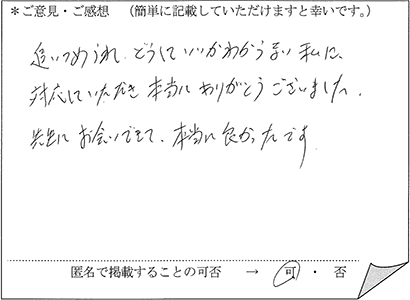 ＊ご意見・ご感想　（簡単に記載していただけますと幸いです。）
追いつめられ、どうしていいかわからない私に、
対応していただき本当にありがとうございました。
先生にお会いできて、本当に良かったです。
匿名で掲載することの可否　→　可　・　否